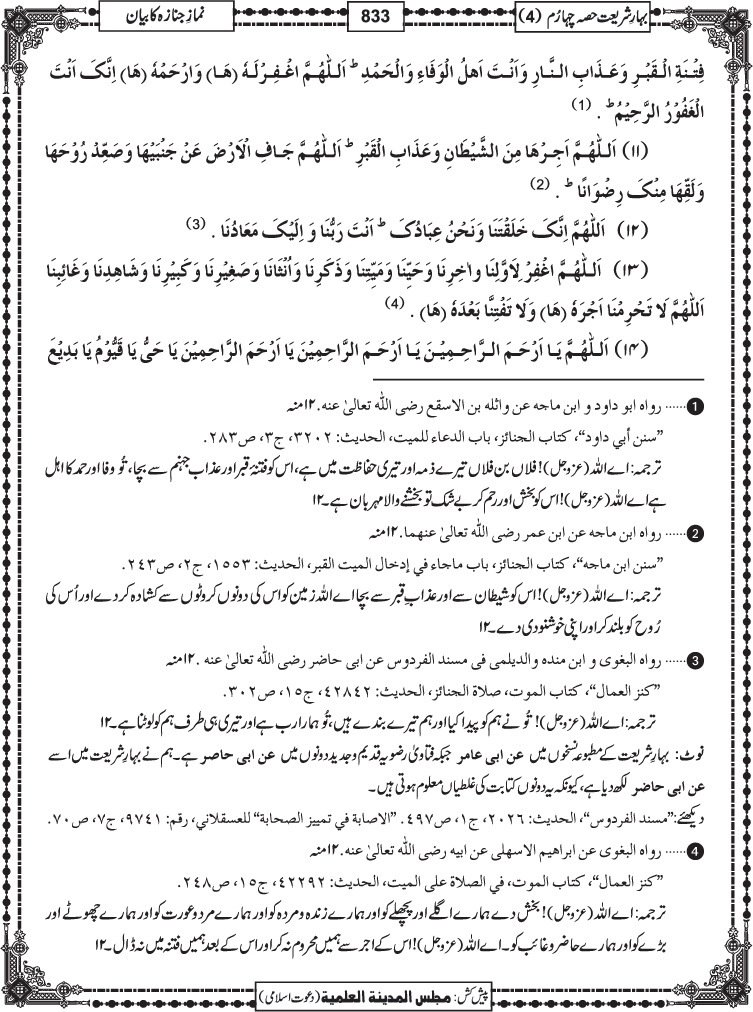 بہارِ شریعت حصہ چہارم (4)
833
نمازِ جنازہ کا بیان
فِتْنَةِ الْقَبْرِ وَعَذَابِ النَّارِ وَاَنْتَ اَهلُ الْوَفَاءِ وَالْحَمْدِ ؕ اَللّٰهُمَّ اغْفِرْلَهٗ (هَا) وَارْحَمْهُ (هَا) اِنَّکَ اَنْتَ
الْغَفُوْرُ الرَّحِيْمُ ؕ . (1)
(۱۱) اَللّٰهُمَّ اَجِرْهَا مِنَ الشَّيْطَانِ وَعَذَابِ الْقَبْرِ ؕ اَللّٰهُمَّ جَافِ الْاَرْضَ عَنْ جَنْبَيْهَا وَصَعِّدْ رُوْحَهَا
وَلَقِّهَا مِنْکَ رِضْوَانًا ؕ . (2)
(۱۲) اَللّٰهُمَّ اِنَّکَ خَلَقْتَنَا وَنَحْنُ عِبَادُکَ ؕ اَنْتَ رَبُّنَا وَ اِلَيْکَ مَعَادُنَا . (3)
(۱۳) اَللّٰهُمَّ اغْفِرْ لِاَوَّلِنَا واٰخِرِنَا وَحَيِّنَا وَمَيِّتِنَا وَذَكَرِنَا وَاُنْثَانَا وَصَغِيْرِنَا وَكَبِيْرِنَا وَشَاهِدِنَا وَغَائِبِنَا
اَللّٰهُمَّ لَا تَحْرِمْنَا اَجْرَهٗ (هَا) وَلَا تَفْتِنَّا بَعْدَهٗ (هَا) . (4)
(۱۴) اَللّٰهُمَّ يَا اَرْحَمَ الرَّاحِمِيْنَ يَا اَرْحَمَ الرَّاحِمِيْنَ يَا اَرْحَمَ الرَّاحِمِيْنَ يَا حَیُّ يَا قَيُّوْمُ يَا بَدِيْعَ
1 ...... رواه ابو داود و ابن ماجه عن واثله بن الاسقع رضی الله تعالیٰ عنه.۱۲منہ
”سنن أبي داود“، كتاب الجنائز، باب الدعاء للميت، الحديث: ٣٢٠٢، ج٣، ص٢٨٣.
ترجمہ: اے اللہ (عزوجل)! فلاں بن فلاں تیرے ذمہ اور تیری حفاظت میں ہے، اس کو فتنۂ قبر اور عذابِ جہنم سے بچا، تُو وفا اور حمد کا اہل
ہے اے اللہ (عزوجل)! اس کو بخش اور رحم کر بے شک تو بخشنے والا مہربان ہے۔۱۲
2 ...... رواه ابن ماجه عن ابن عمر رضی الله تعالیٰ عنهما.۱۲منہ
”سنن ابن ماجه“، كتاب الجنائز، باب ماجاء في إدخال الميت القبر، الحديث: ١٥٥٣، ج٢، ص٢٤٣.
ترجمہ: اے اللہ (عزوجل)! اس کو شیطان سے اور عذابِ قبر سے بچا اے اللہ زمین کو اس کی دونوں کروٹوں سے کشادہ کر دے اور اُس کی
رُوح کو بلند کر اور اپنی خوشنودی دے۔۱۲
3 ...... رواه البغوی و ابن منده والدیلمی فی مسند الفردوس عن ابی حاضر رضی الله تعالیٰ عنه .۱۲منہ
”كنز العمال“، كتاب الموت، صلاة الجنائز، الحديث: ٤٢٨٤٢، ج١٥، ص٣٠٢.
ترجمہ: اے اللہ (عزوجل)! تُو نے ہم کو پیدا کیا اور ہم تیرے بندے ہیں، تُو ہمارا رب ہے اور تیری ہی طرف ہم کو لوٹنا ہے۔۱۲
نوٹ: بہارِ شریعت کے مطبوعہ نسخوں میں عن ابی عامر جبکہ فتاویٰ رضویہ قدیم و جدید دونوں میں عن ابی حاصر ہے۔ ہم نے بہارِ شریعت میں اسے
عن ابی حاضر لکھ دیا ہے، کیونکہ یہ دونوں کتابت کی غلطیاں معلوم ہوتی ہیں۔
دیکھئے: ”مسند الفردوس“، الحديث: ٢٠٢٦، ج١، ص٤٩٧. ”الاصابة في تمييز الصحابة“ للعسقلاني، رقم: ٩٧٤١، ج٧، ص٧٠.
4 ...... رواه البغوی عن ابراهیم الاسهلی عن ابیه رضی الله تعالیٰ عنه.۱۲منہ
”كنز العمال“، كتاب الموت، في الصلاة على الميت، الحديث: ٤٢٢٩٢، ج١٥، ص٢٤٨.
ترجمہ: اے اللہ (عزوجل)! بخش دے ہمارے اگلے اور پچھلے کو اور ہمارے زندہ و مردہ کو اور ہمارے مرد و عورت کو اور ہمارے چھوٹے اور
بڑے کو اور ہمارے حاضر و غائب کو۔ اے اللہ (عزوجل)! اس کے اجر سے ہمیں محروم نہ کر اور اس کے بعد ہمیں فتنہ میں نہ ڈال۔۱۲
پیش کش: مجلس المدينة العلمية (دعوت اسلامی)